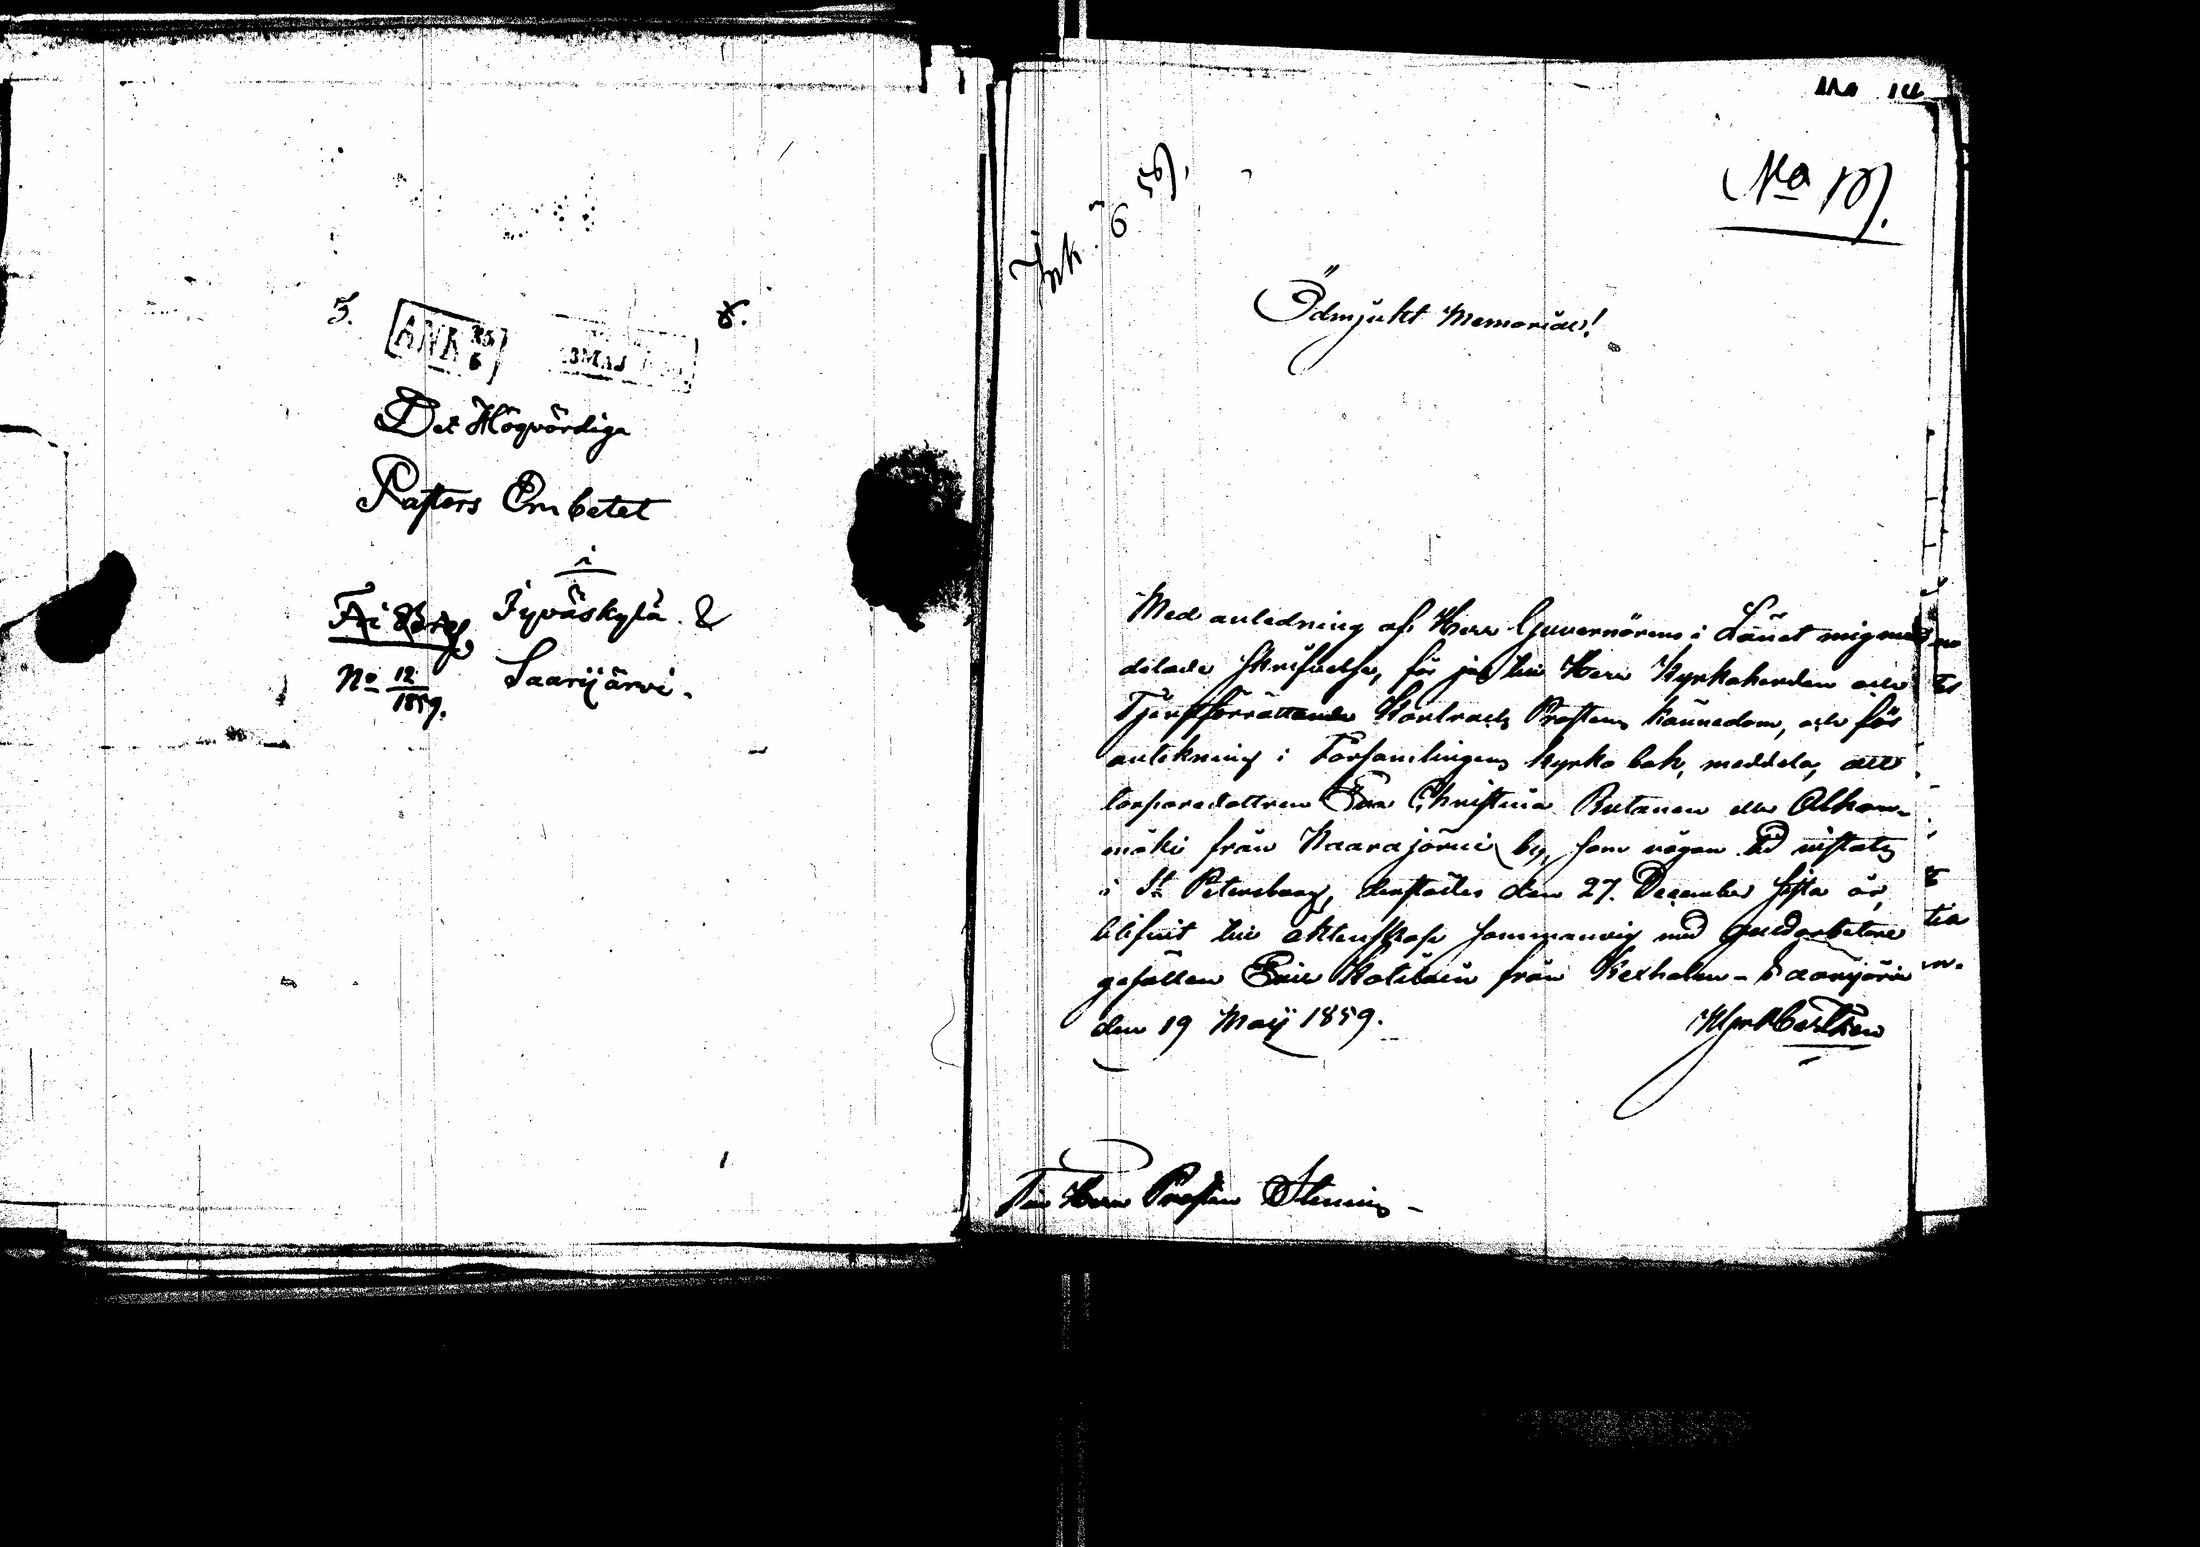 5. ANK 8.
3 MAJ
Det Högvördiga
Pastors Embetet
i
Jyväskylä &
Saarijärvi.
Fri Bref
No 12/1859.
Ink. 6
No 19.
Ödmjukt Memorial!
Med anledning af Herr Guvernörens i Länet mig med
delade skrifvelse, får jag till Herr Kyrkoherden och
Tjenstförrättande Kontracts Prostens kännedom, och för
antekning i Församlingens kyrko bok, meddela, att
torparedottren Eva Christina Rutanen eller Alkon-
mäki från Kaarajärvi by, som någon tid vistats
i St Petersburg, derstädes den 27. December sista år,
blifvit till äktenskap sammanvigd med guldarbetare
gesällen Eric Kotilain från Kexholm - Saarijärvi
den 19 Maij 1859.
Till Herr Prosten Stenius -